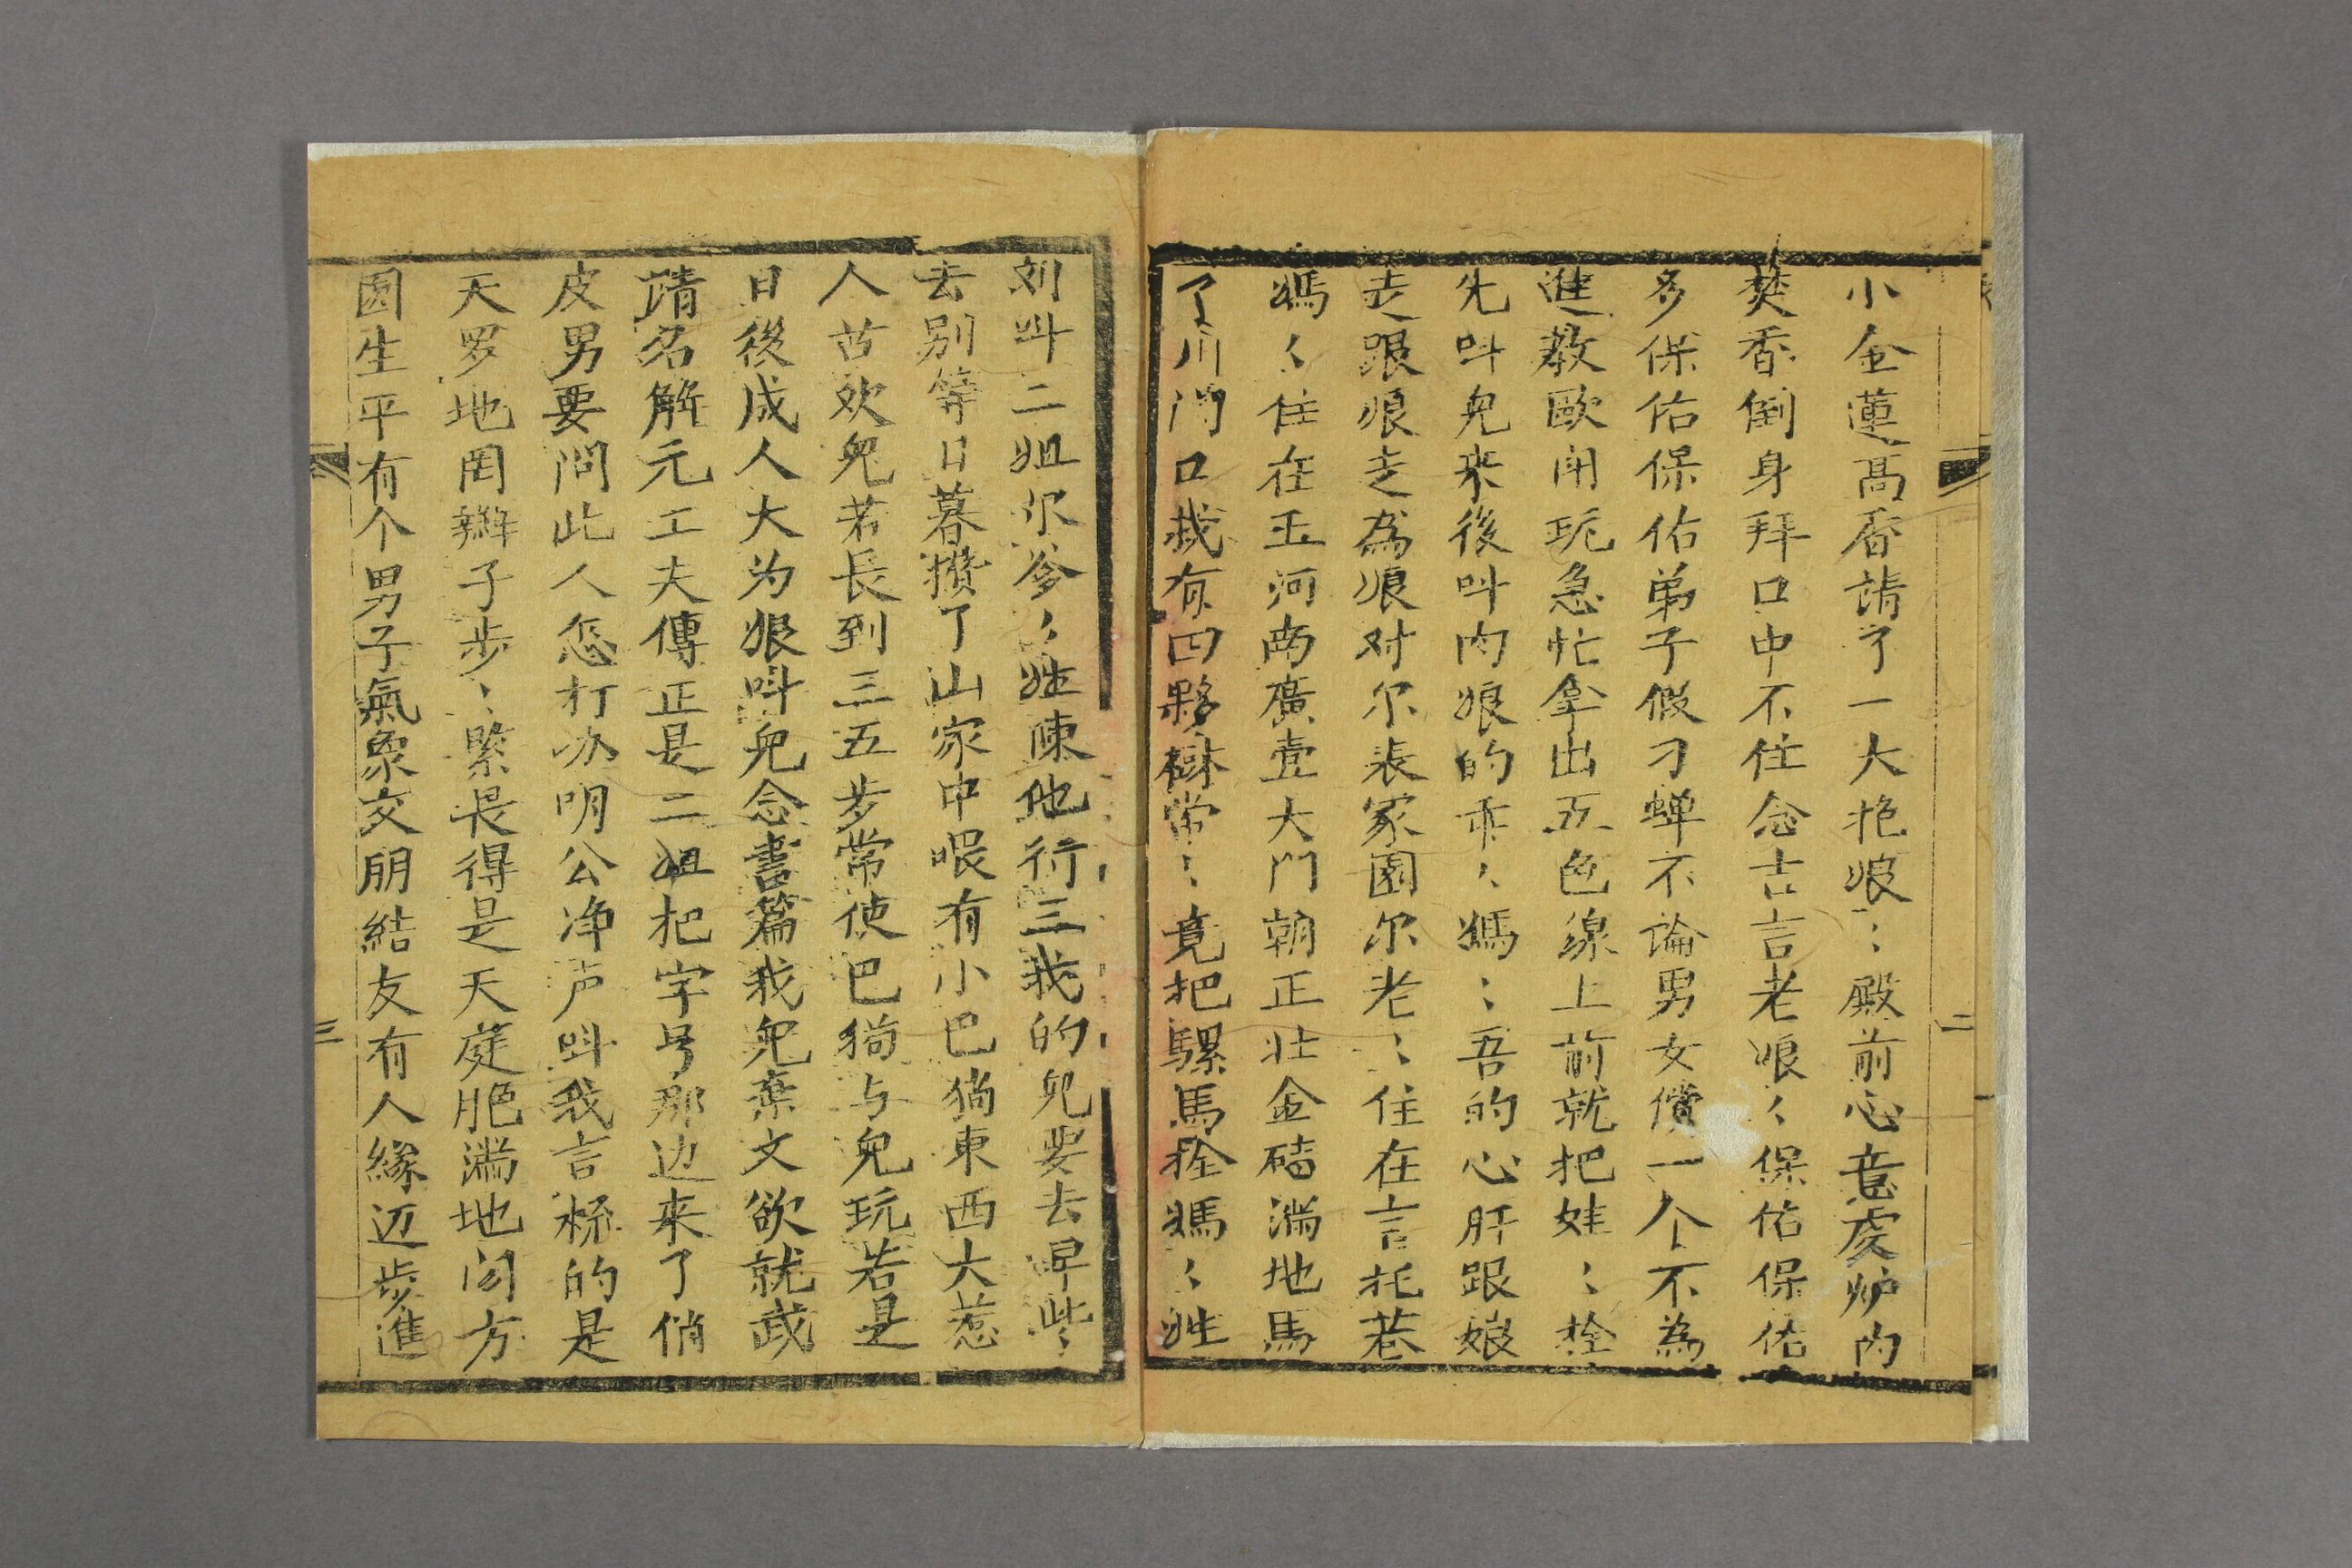 小金蓮髙香請了一大抱娘〻殿前心意虔炉内
焚香倒身拜口中不住念吉言老娘〻保佑保佑
多保佑保佑弟子假刁蝉不論男女償一个不為
進教歐闲玩急忙拿出五色線上前就把娃〻拴
先呌兒来後呌肉娘的乖〻媽〻吾的心肝跟娘
走跟娘走為娘对尔表家園尔老〻住在言托巷
媽〻住在玉河南廣壹大門朝正壮金磕满地馬
了川門口栽有四夥樹常〻竟把騾馬拴媽〻姓
刘呌二姐尔爹〻姓陳他行三我的兒要去早些〻
去别等日暮攅了山家中哏有小巴狗東西大惹
人喜欢兒若長到三五岁常使巴狗与兒玩若是
日後成人大为娘呌兒念書篇我兒棄文欲就武
請名觧元工夫傳正是二姐把字号那边来了俏
皮男要問此人怎打办明公净声呌我言梳的是
天罗地网辮子步〻緊畏得是天庭肥满地闲方
圆生平有个男子氣象交朋結友有人緣迈步進
二
三